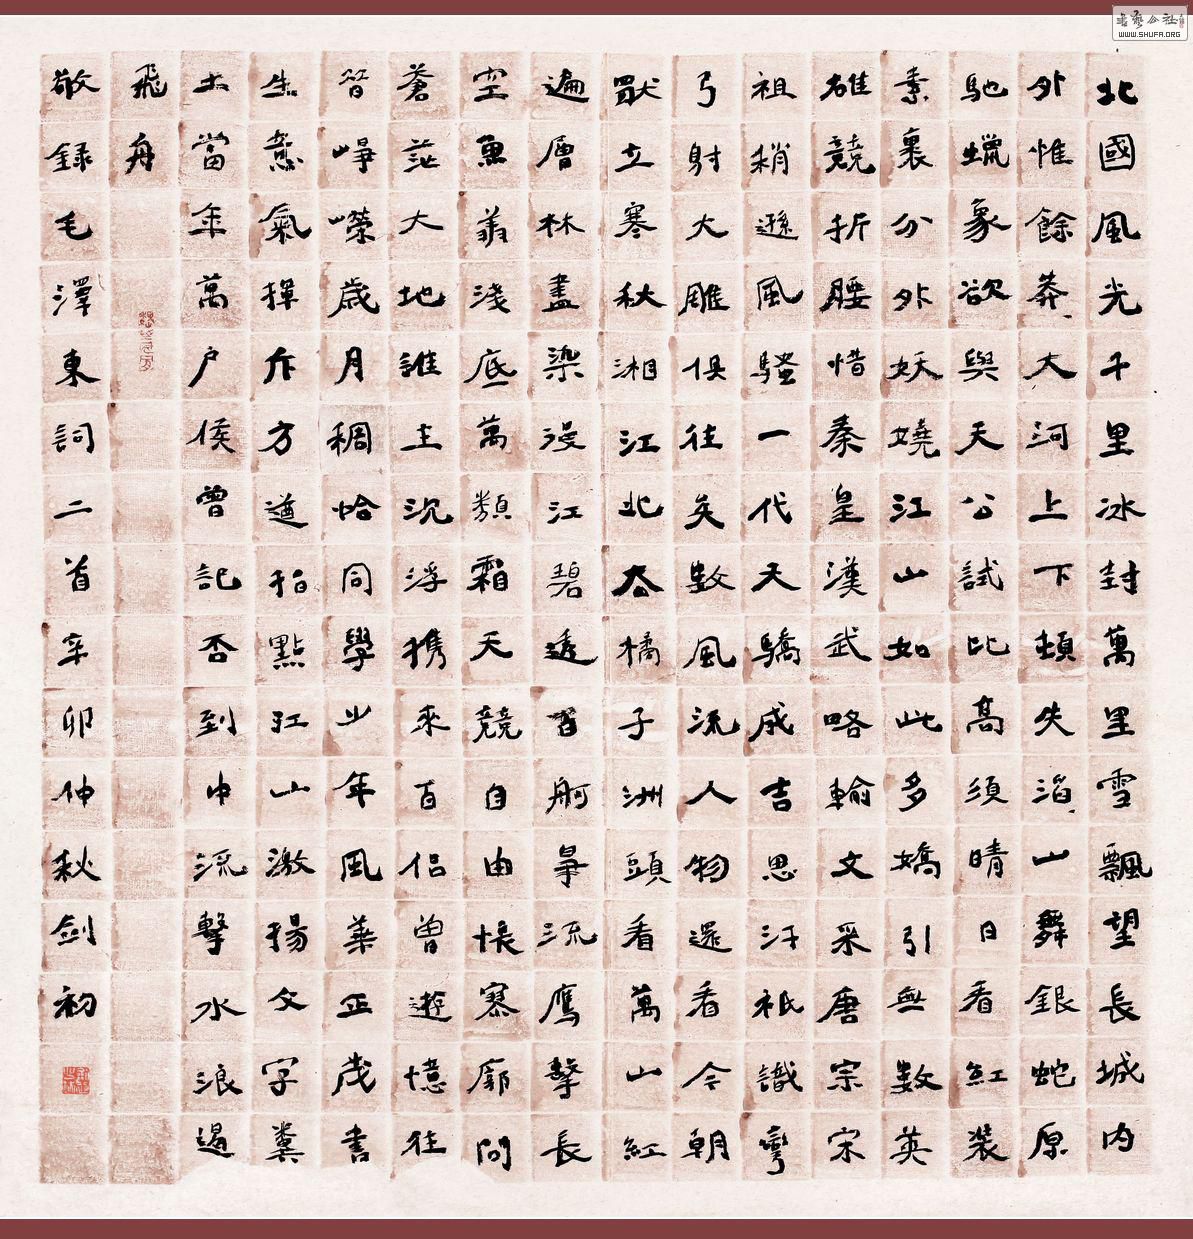 北國風光千里冰封萬里雪飄望長城内
外惟餘莽々大河上下頓失滔々山舞銀蛇原
馳蠟象欲與天公試比高須晴日看紅裝
素裹分外妖嬈江山如此多嬌引無數英
雄競折腰惜秦皇漢武略輸文采唐宗宋
祖稍遜風騷一代天驕成吉思汗祇識彎
弓射大雕俱往矣數風流人物還看今朝
獨立寒秋湘江北去橘子洲頭看萬山紅
遍層林盡染漫江碧透百舸爭流鷹擊長
空魚翔淺底萬類霜天競自由悵寥廓問
蒼茫大地誰主沉浮攜來百侣曾遊憶往
昔崢嶸歲月稠恰同學少年風華正茂書
生意氣揮斥方遒指點江山激揚文字糞
土當年萬户侯曾記否到中流擊水浪遏
飛舟
敬録毛澤東詞二首辛卯仲秋剑初
WWW.SHUFA.ORG